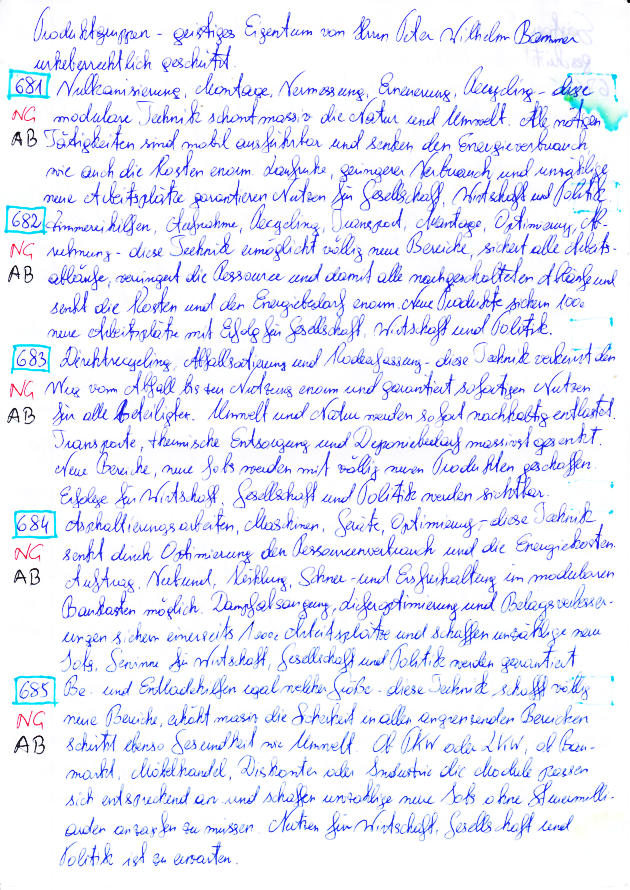 Produktgruppen - geistiges Eigentum von Herrn Peter Wilhelm Bammer
urheberrechtlich geschützt.
681 Vulkanisierung, Montage, Vermessung, Erneuerung, Recycling - diese
NG modulare Technik schont massiv die Natur und Umwelt. Alle nötigen
AB Tätigkeiten sind mobil ausführbar und senken den Energieverbrauch
wie auch die Kosten enorm. Laufruhe, geringerer Verbrauch und unzählige
neue Arbeitsplätze garantieren Nutzen für Gesellschaft, Wirtschaft und Politik
682 Zimmereihilfen, Aufnahme, Recycling, Transport, Montage, Optimierung, Ab-
NG rechnung - diese Technik ermöglicht völlig neue Bereiche, sichert alle Arbeits-
AB abläufe, verringert die Ressource und damit alle nachgeschalteten Abläufe und
senkt die Kosten und den Energiebedarf enorm. Neue Produkte sichern 1000
neue Arbeitsplätze mit Erfolg für Gesellschaft, Wirtschaft und Politik.
683 Direktrecycling, Abfallsortierung und Kodeerfassung - diese Technik verkürzt den
NG Weg vom Abfall bis zur Nutzung enorm und garantiert sofortigen Nutzen
AB für alle Beteiligten. Umwelt und Natur werden sofort nachhaltig entlastet.
Transporte, thermische Entsorgung und Deponiebedarf massivst gesenkt.
Neue Bereiche, neue Jobs werden mit völlig neuen Produkten geschaffen.
Erfolge für Wirtschaft, Gesellschaft und Politik werden sichtbar.
684 Asphaltierungsarbeiten, Maschinen, Geräte, Optimierung - diese Technik
NG senkt durch Optimierung den Ressourcenverbrauch und die Energiekosten.
AB Auftrag, Verbund, Kühlung, Schnee- und Eisfreihaltung im modularen
Baukasten möglich. Dampfabsaugung, Lieferoptimierung und Belagsverbesser-
ungen sichern einerseits 1000e Arbeitsplätze und schaffen unzählige neue
Jobs. Gewinne für Wirtschaft, Gesellschaft und Politik werden garantiert
685 Be- und Entladehilfen egal welcher Größe - diese Technik schafft völlig
NG neue Bereiche, erhöht massiv die Sicherheit in allen angrenzenden Bereichen
AB schützt ebenso Gesundheit wie Umwelt. Ob PKW oder LKW, ob Bau-
markt, Möbelhandel, Diskonter oder Industrie die Module passen
sich entsprechend an und schaffen unzählige neue Jobs ohne Steuermilli-
arden anzapfen zu müssen. Nutzen für Wirtschaft, Gesellschaft und
Politik ist zu erwarten.